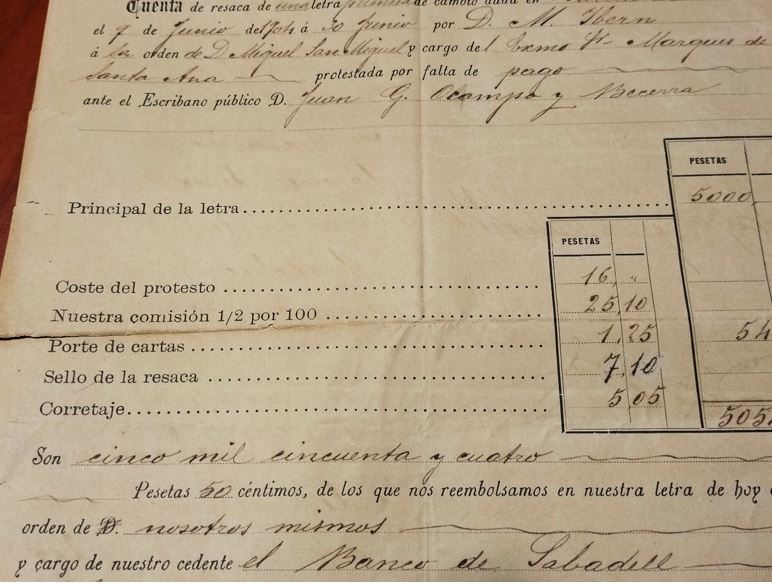 Cuenta de resaca de una letra primera de cambio dada en
el 7 de Junio de 1904 á 30 Junio por D. M. Ibern
á la orden de D Miguel San Miguel y cargo del Exmo Sr. Marques de
Santa Ana protestada por falta de pago
ante el Escribano público D. Juan G. Ocampo y Becerra
PESETAS
Principal de la letra 5000,
PESETAS
Coste del protesto 16, "
Nuestra comisión 1/2 por 100 25,10
Porte de cartas 1,25 54
Sello de la resaca 7,10
Corretaje 5,05 505
Son cinco mil cincuenta y cuatro
Pesetas 50 céntimos, de los que nos reembolsamos en nuestra letra de hoy
orden de D. nosotros mismos
y cargo de nuestro cedente el Banco de Sabadell